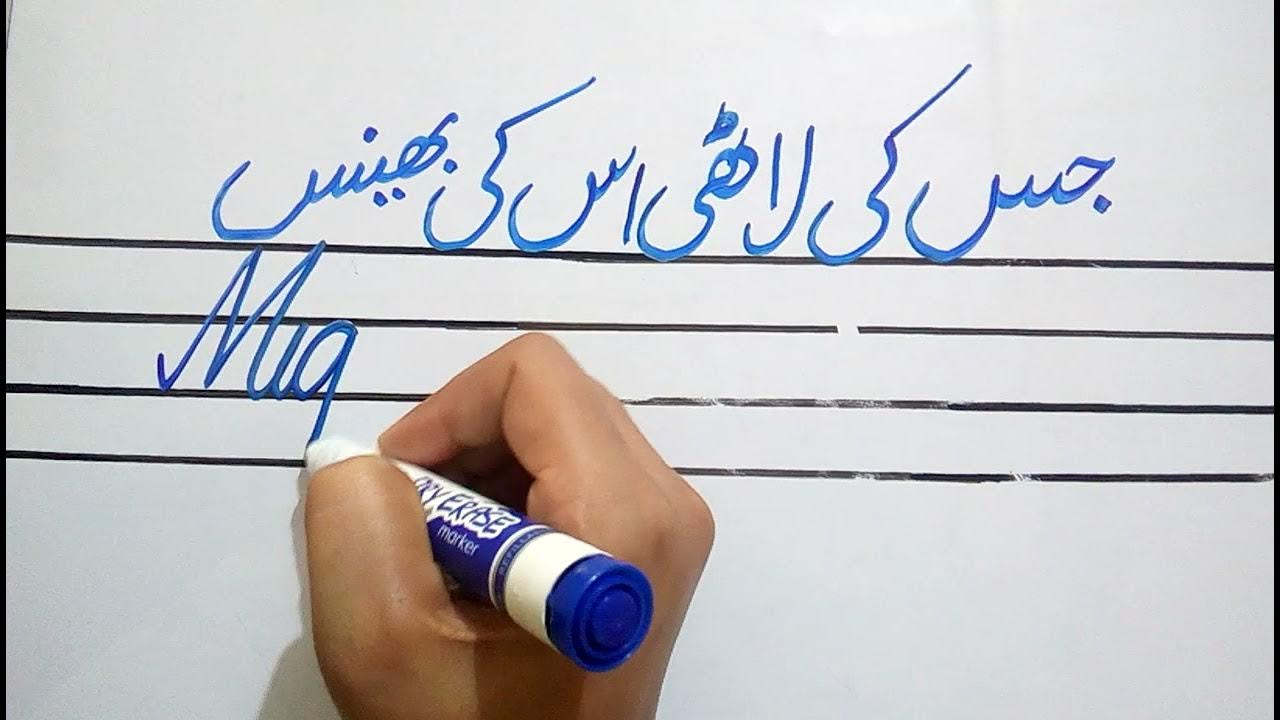 جس کی لاٹھی اس کی بھینس
Mig
DRY ERASE
marker